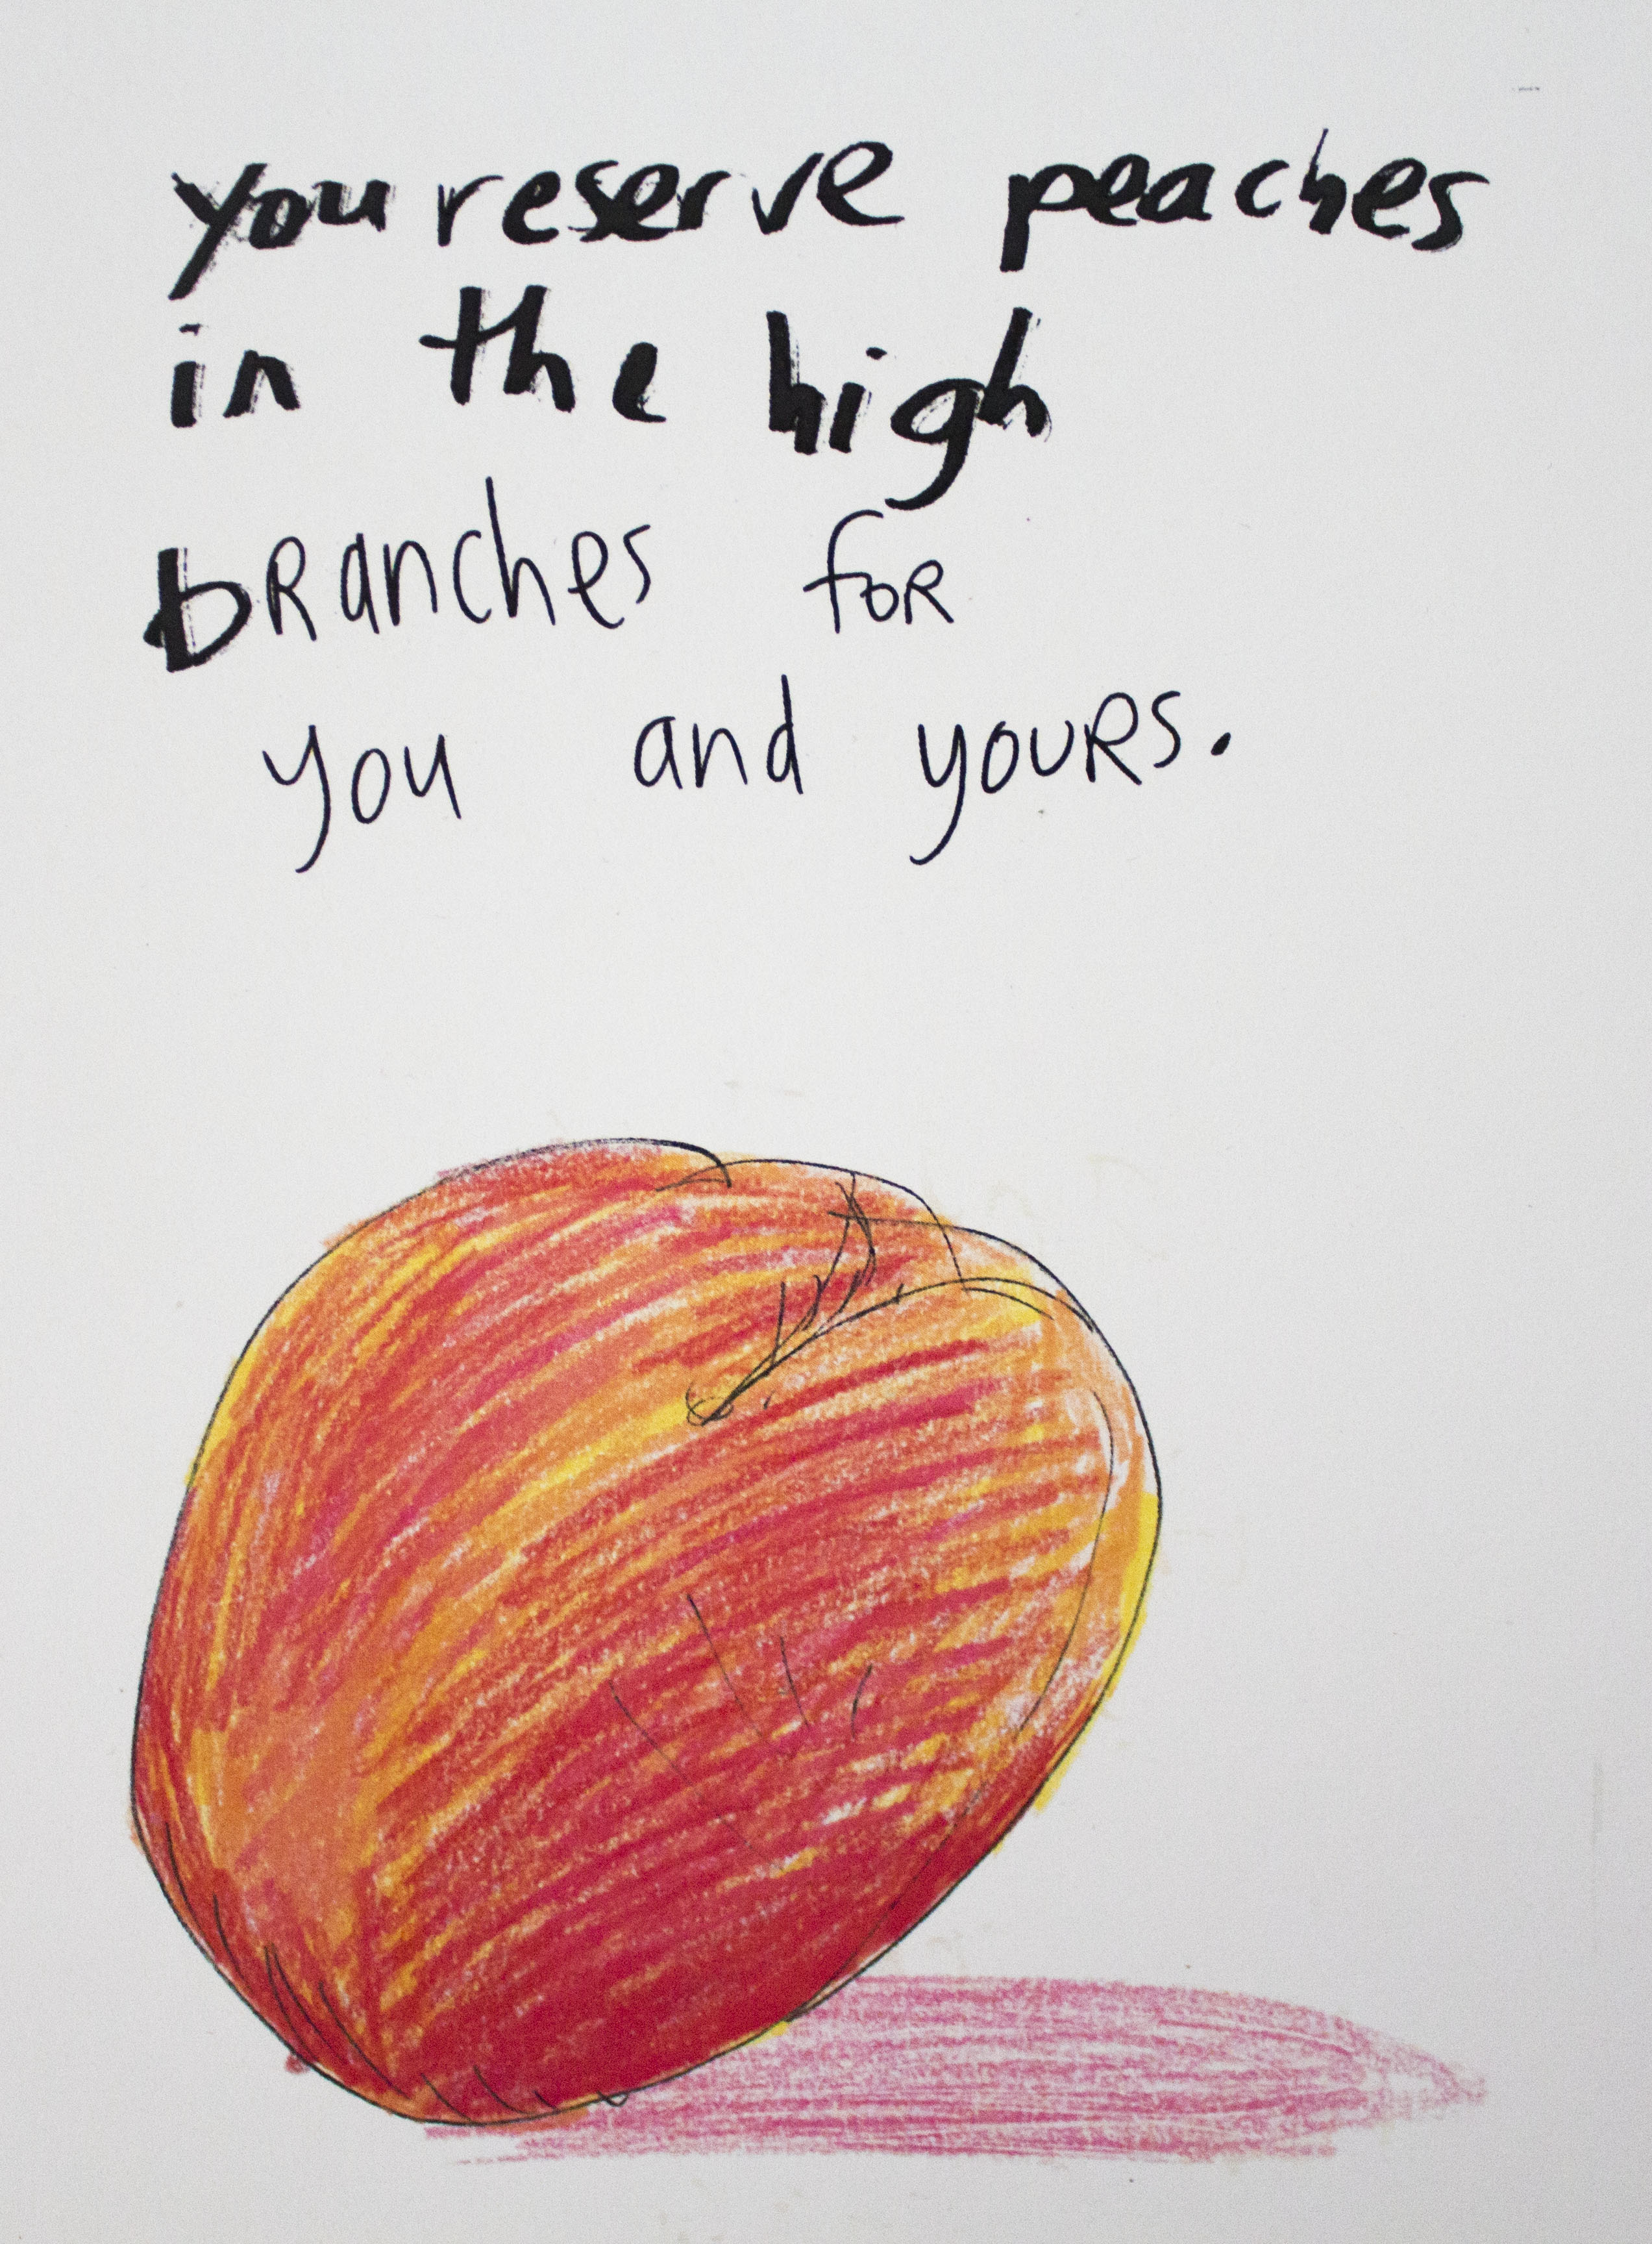 you reserve peaches
in the high
bRanches foR
you and youRs.